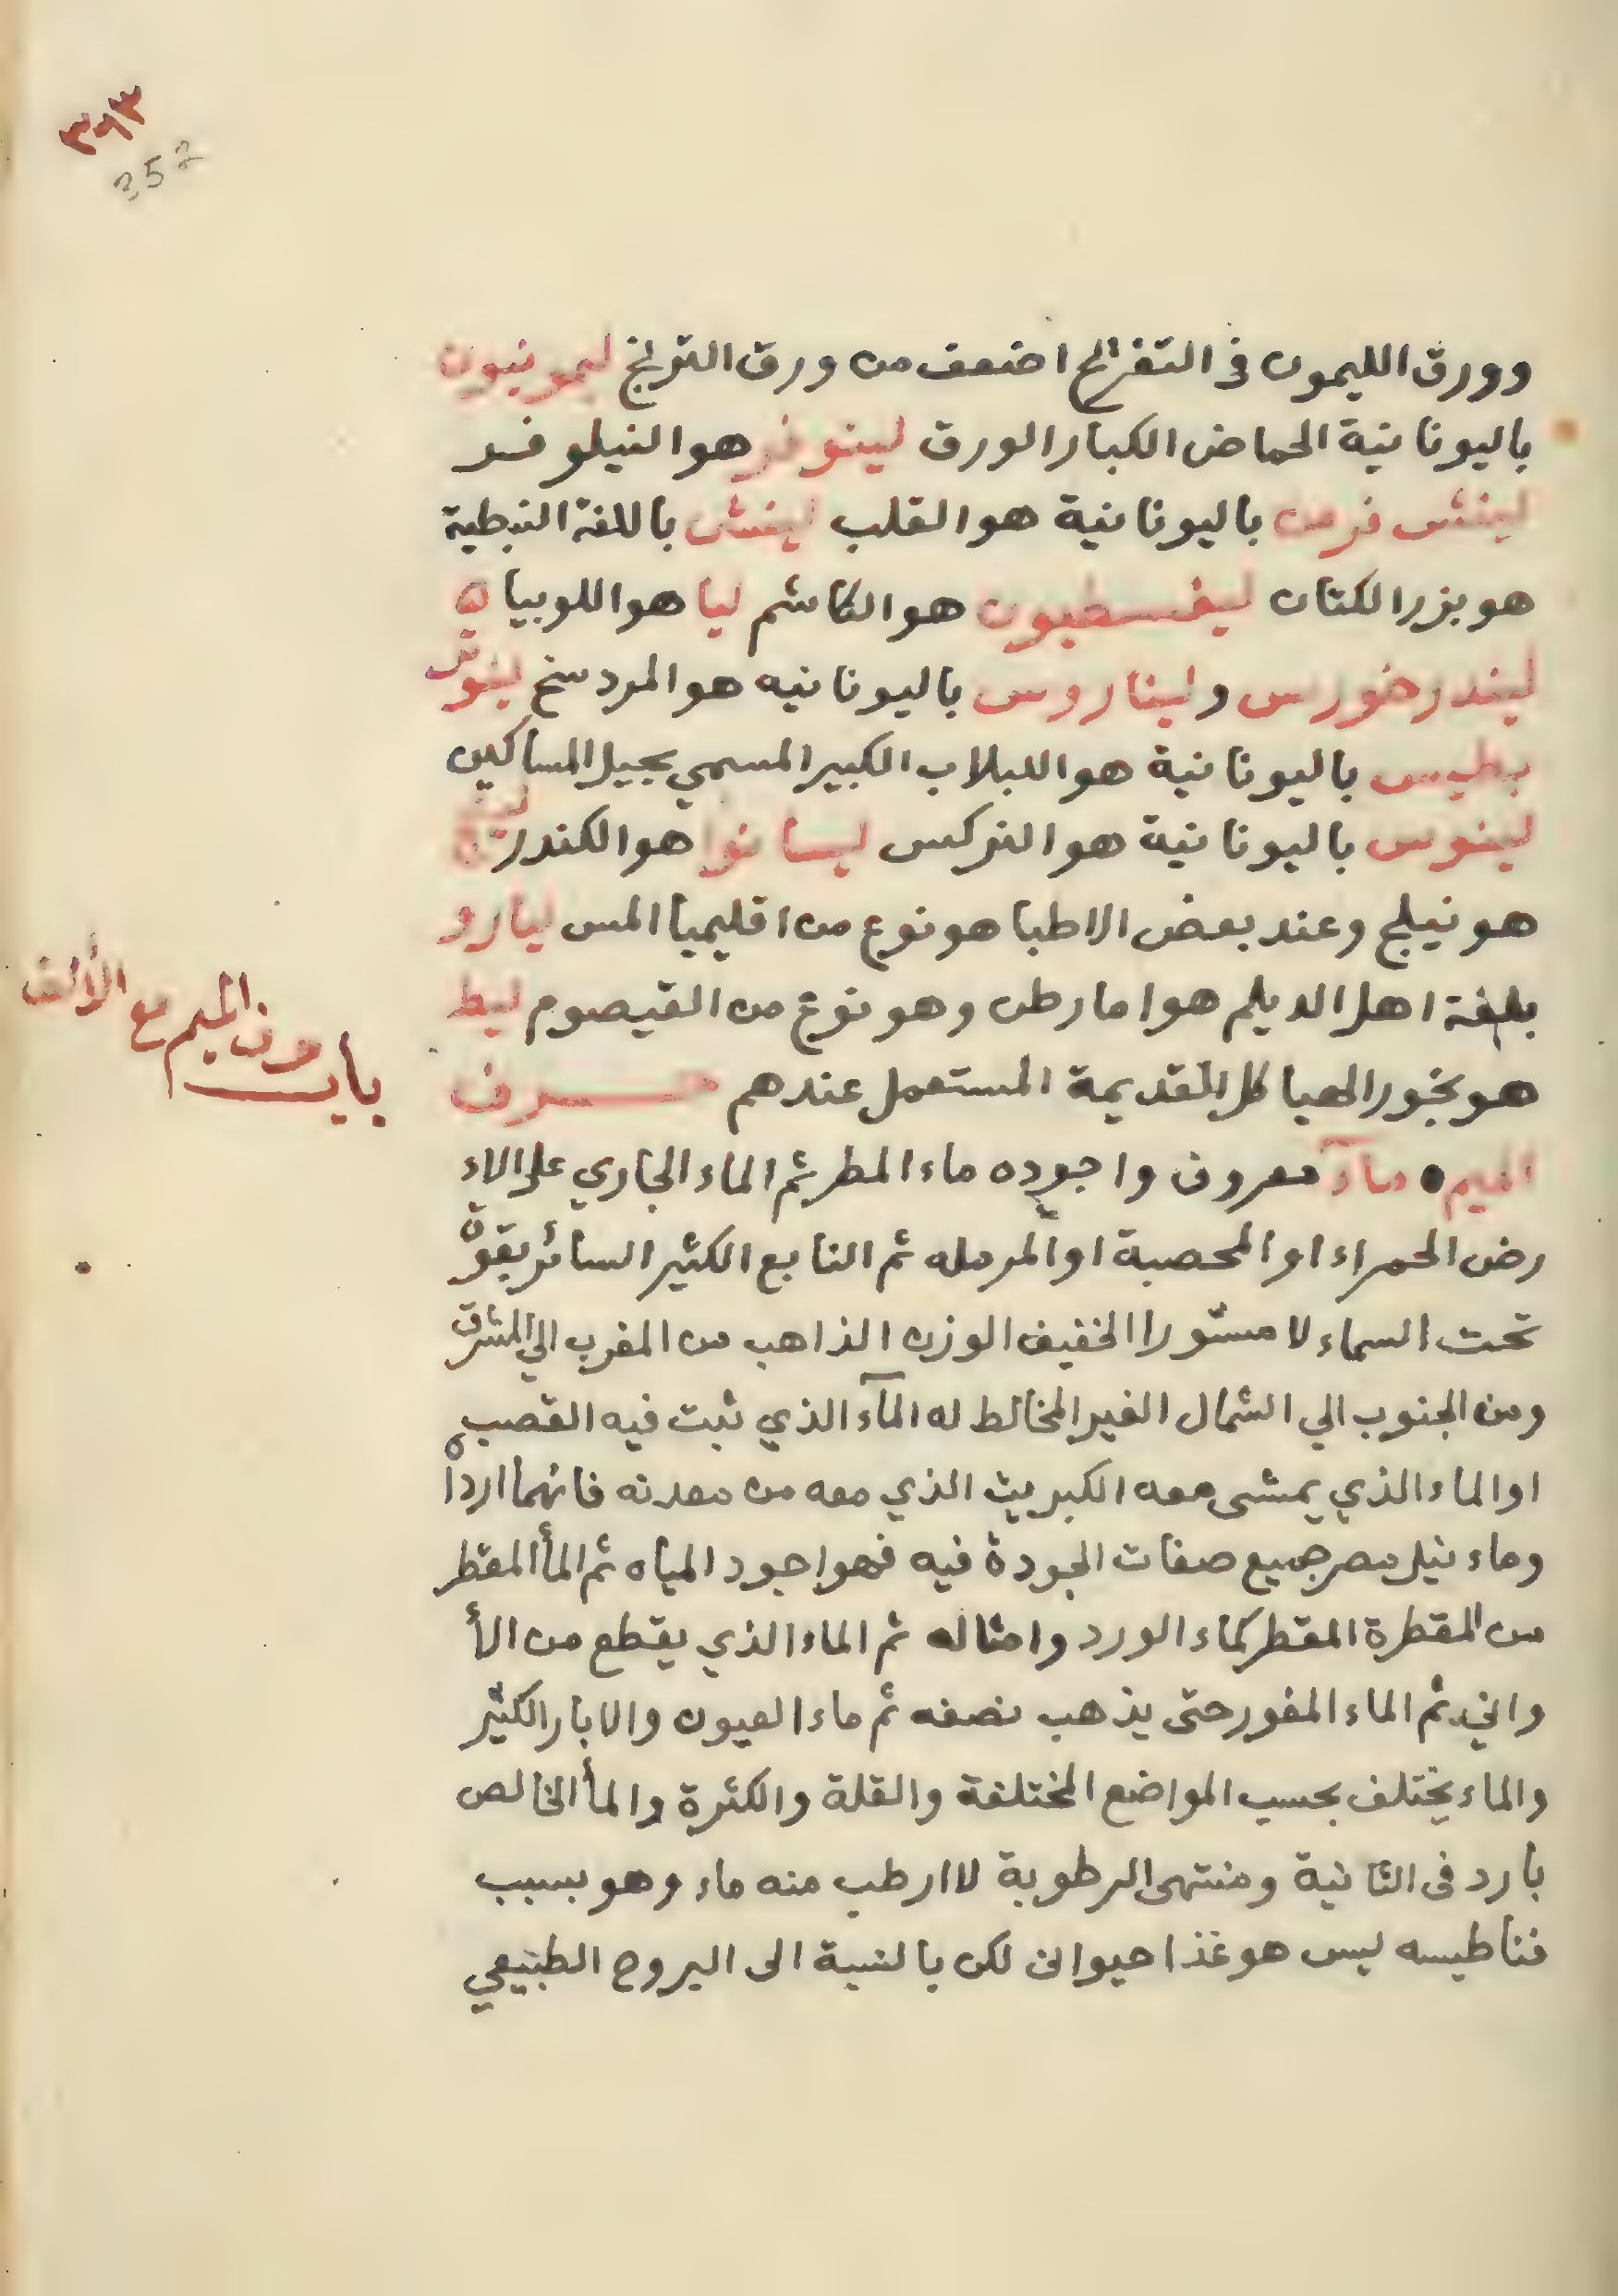 ٣٩٣
352
وورق الليمون فى التفريح اضعف من ورق الترنج ليمونيون
باليونانية الحماض الكبار الورق لينوفر هو النيلوفر
لينش فرمن باليونانية هو القلب لينش باللغة النبطية
هو بزر الكتان ليغسطيون هو الكاشم ليا هو اللوبيا ه
ليندرخورس وليناروس باليونانيه هو المردسنج لينوش
بطيس باليونانية هو اللبلاب الكبير المسمي بحبل المساكين
لينوس باليونانية هو النركس ليسانوا هو الكندر لينج
هو نيلج وعند بعض الاطبا هو نوع من اقليميا المس ليارو
بلغة اهل الديلم هو امارطن وهو نوع من القيصوم ليط
هو بخور الهياكل القديمة المستعمل عندهم حرف
الميم ماء معروف واجوده ماء المطر ثم الماء الجاري على الار
رض الحمراء او المحصبة او المرمله ثم النابع الكثير السائر بقوة
تحت السماء لا مستورا الخفيف الوزن الذاهب من المغرب الي المشرق
ومن الجنوب الي الشمال الغير المخالط له المآء الذي نبت فيه القصب
او الماء الذي يمشى معه الكبريت الذي معه من معدنه فانهما اردا
وماء نيل مصر جميع صفات الجودة فيه فهو اجود المياه ثم المأ المقطر
من المقطرة المقطر كماء الورد وامثاله ثم الماء الذي يقطع من الأ
واني ثم الماء المفور حتى يذهب نصفه ثم ماء العيون والابار الكثير
والماء يختلف بحسب المواضع المختلفة والقلة والكثرة والمأ الخالص
بارد فى الثانية ومنتهى الرطوبة لا ارطب منه ماء وهو بسبب
فناطيسه ليس هو غذا حيوانى لكن بالنسبة الى الروح الطبيعي
باب حرف الميم مع الألف